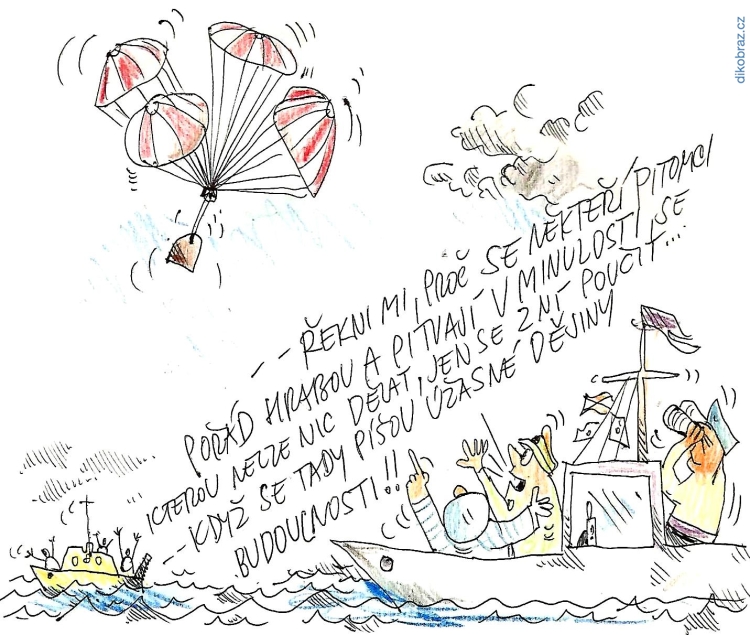 dikobraz.cz
-- ŘEKNI MI, PROČ SE NĚKTEŘÍ PITOMCI
POŘÁD HRABOU A PITVAJÍ V MINULOSTI, SE
KTEROU NELZE NIC DĚLAT, JEN SE Z NÍ POUČIT...
- KDYŽ SE TADY PÍŠOU ÚŽASNÉ DĚJINY
BUDOUCNOSTI!!